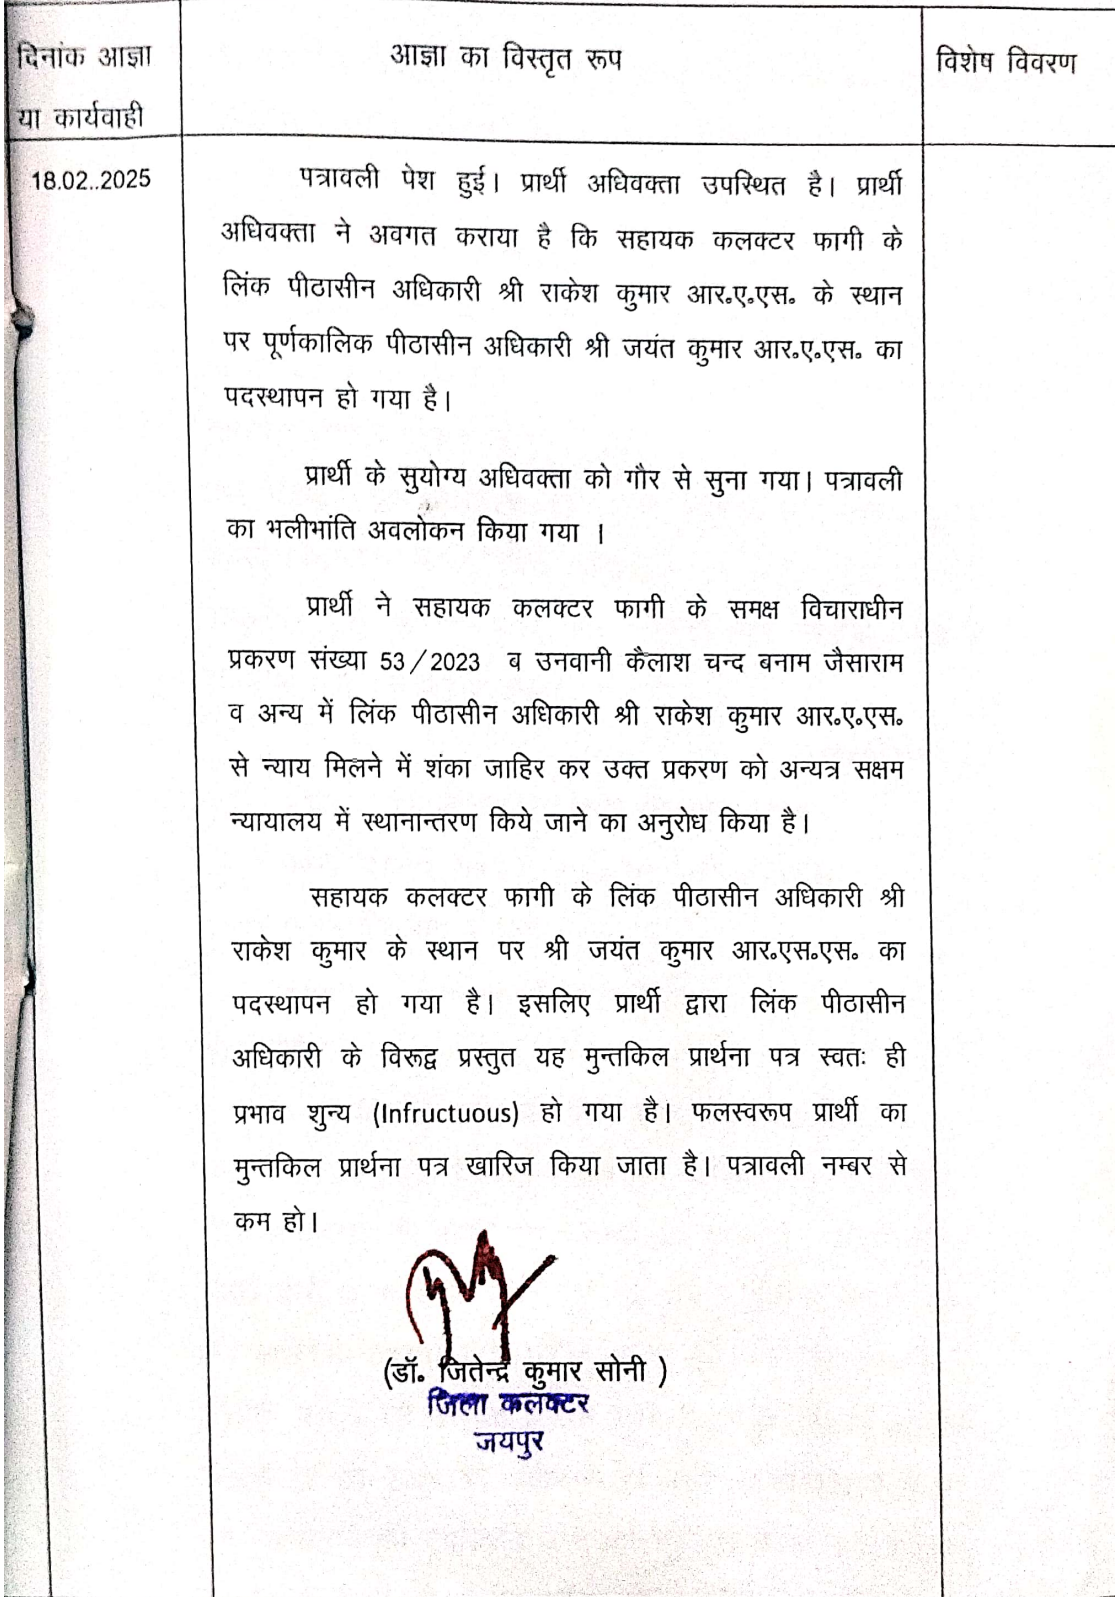 दिनांक आज्ञा
या कार्यवाही
आज्ञा का विस्तृत रूप
विशेष विवरण
18.02..2025
पत्रावली पेश हुई। प्रार्थी अधिवक्ता उपस्थित है। प्रार्थी
अधिवक्ता ने अवगत कराया है कि सहायक कलक्टर फागी के
लिंक पीठासीन अधिकारी श्री राकेश कुमार आर॰ए॰एस॰ के स्थान
पर पूर्णकालिक पीठासीन अधिकारी श्री जयंत कुमार आर॰ए॰एस॰ का
पदस्थापन हो गया है।
प्रार्थी के सुयोग्य अधिवक्ता को गौर से सुना गया। पत्रावली
का भलीभांति अवलोकन किया गया ।
प्रार्थी ने सहायक कलक्टर फागी के समक्ष विचाराधीन
प्रकरण संख्या 53/2023 ब उनवानी कैलाश चन्द बनाम जैसाराम
व अन्य में लिंक पीठासीन अधिकारी श्री राकेश कुमार आर॰ए॰एस॰
से न्याय मिलने में शंका जाहिर कर उक्त प्रकरण को अन्यत्र सक्षम
न्यायालय में स्थानान्तरण किये जाने का अनुरोध किया है।
सहायक कलक्टर फागी के लिंक पीठासीन अधिकारी श्री
राकेश कुमार के स्थान पर श्री जयंत कुमार आर॰एस॰एस॰ का
पदस्थापन हो गया है। इसलिए प्रार्थी द्वारा लिंक पीठासीन
अधिकारी के विरूद्व प्रस्तुत यह मुन्तकिल प्रार्थना पत्र स्वतः ही
प्रभाव शुन्य (Infructuous) हो गया है। फलस्वरूप प्रार्थी का
मुन्तकिल प्रार्थना पत्र खारिज किया जाता है। पत्रावली नम्बर से
कम हो।
(डॉ. जितेन्द्र कुमार सोनी )
जिला कलक्टर
जयपुर